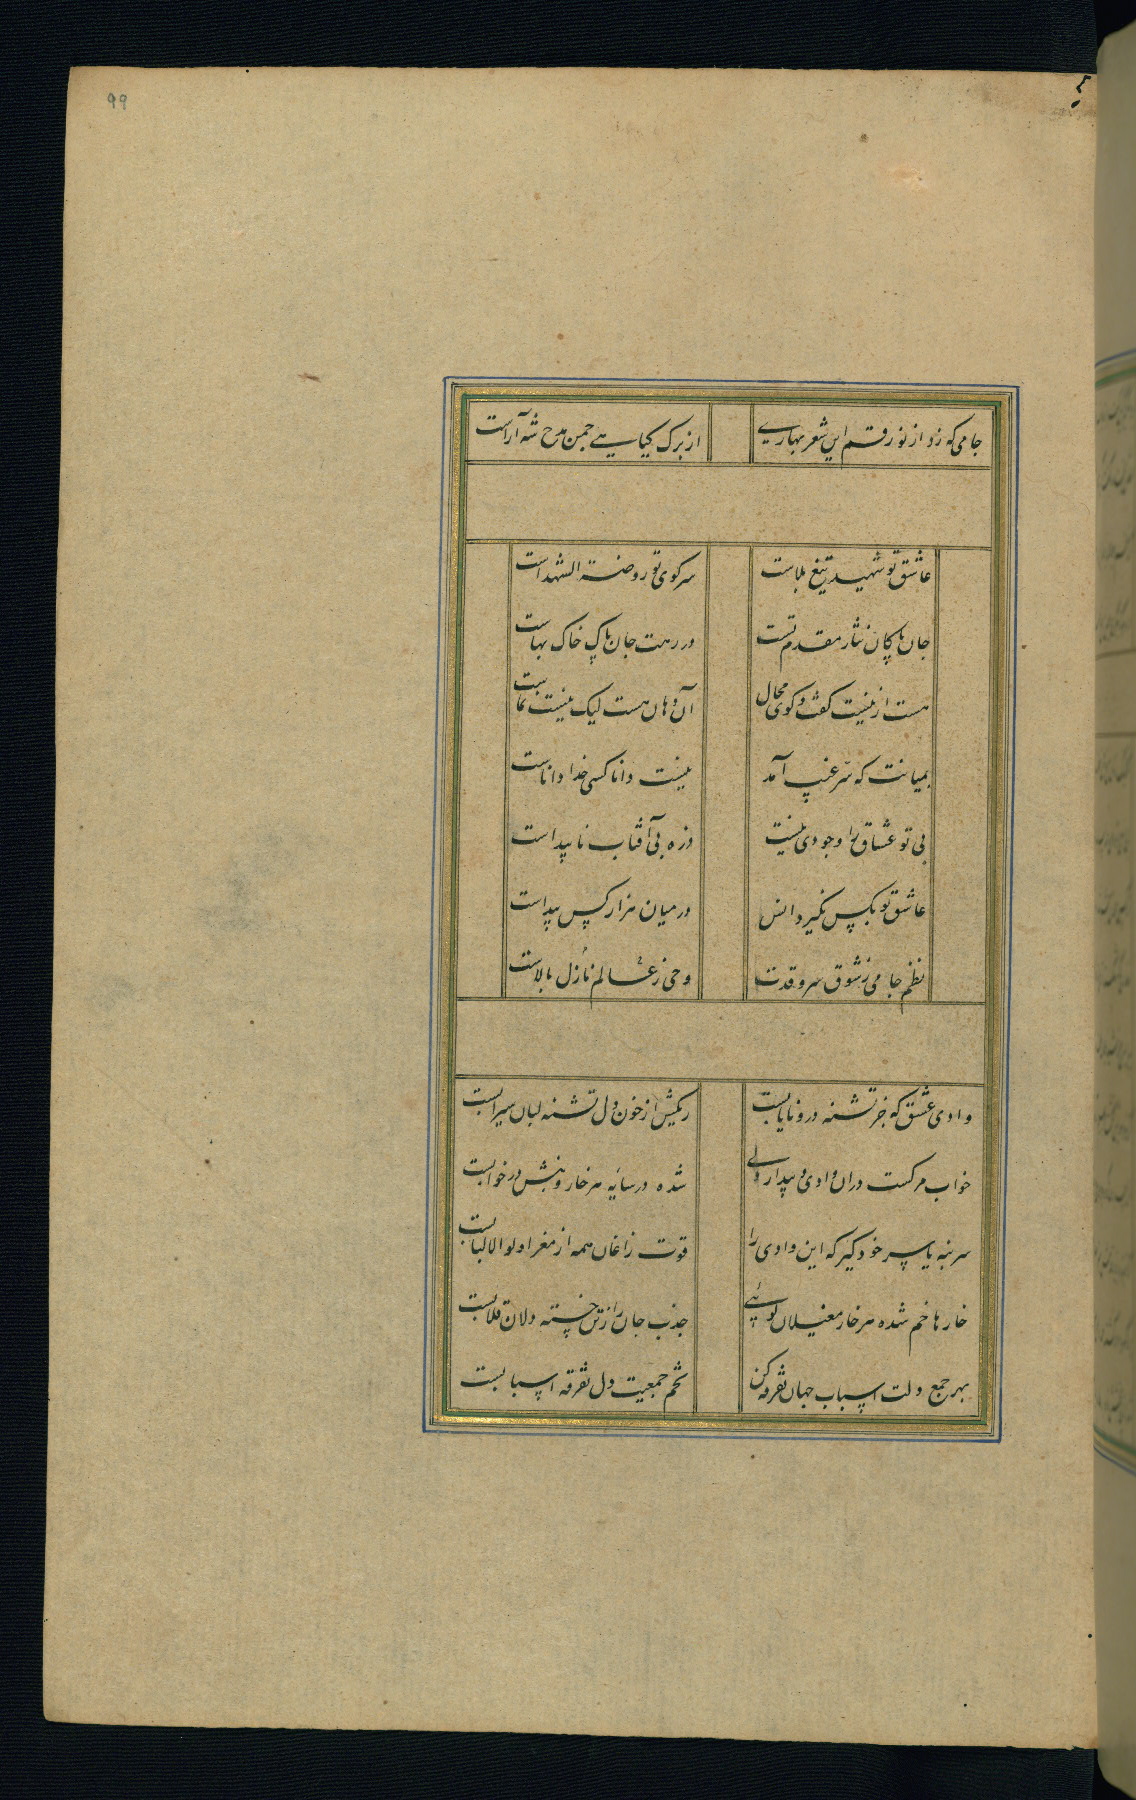 ۹۹
جامی که زد از نو رقم این شعر بهاری
از برک کیاهی چمن مدح شه آراست
عاشق تو شهید تیغ بلاست
سر کوی تو روضة الشهداست
جان پاکان نثار مقدم تست
در رهت جان پاک خاک بهاست
هست از نیست کفت و کوی محال
آن دهان هست لیک نیست نماست
بمیانت که سرّ غیب آمد
نیست دانا کسی خدا داناست
بی تو عشاق را وجودی نیست
ذره بی آفتاب ناپیداست
عاشق تو بکس نکیرد انس
در میان هزار کس پیداست
نظم جامی ز شوق سرو قدت
وحی ز عالم نازل بالاست
وادی عشق که جز تشنه درو نایابست
ریکش از خون دل تشنه لبان سیرابست
خواب مرکست در ان وادی و بیدار دلی
شده در سایه هر خار و بنش در خوابست
سر بنه یا سر خود کیر که این وادی را
قوت زاغان همه از مغز اولو الالبابست
خارها خم شده هر خار مغیلان کوئی
جذب جان را ز تن خسته دلان قلابست
بهر جمع دلت اسباب جهان تفرقه کن
تخم جمعیت دل تفرقه اسبابست